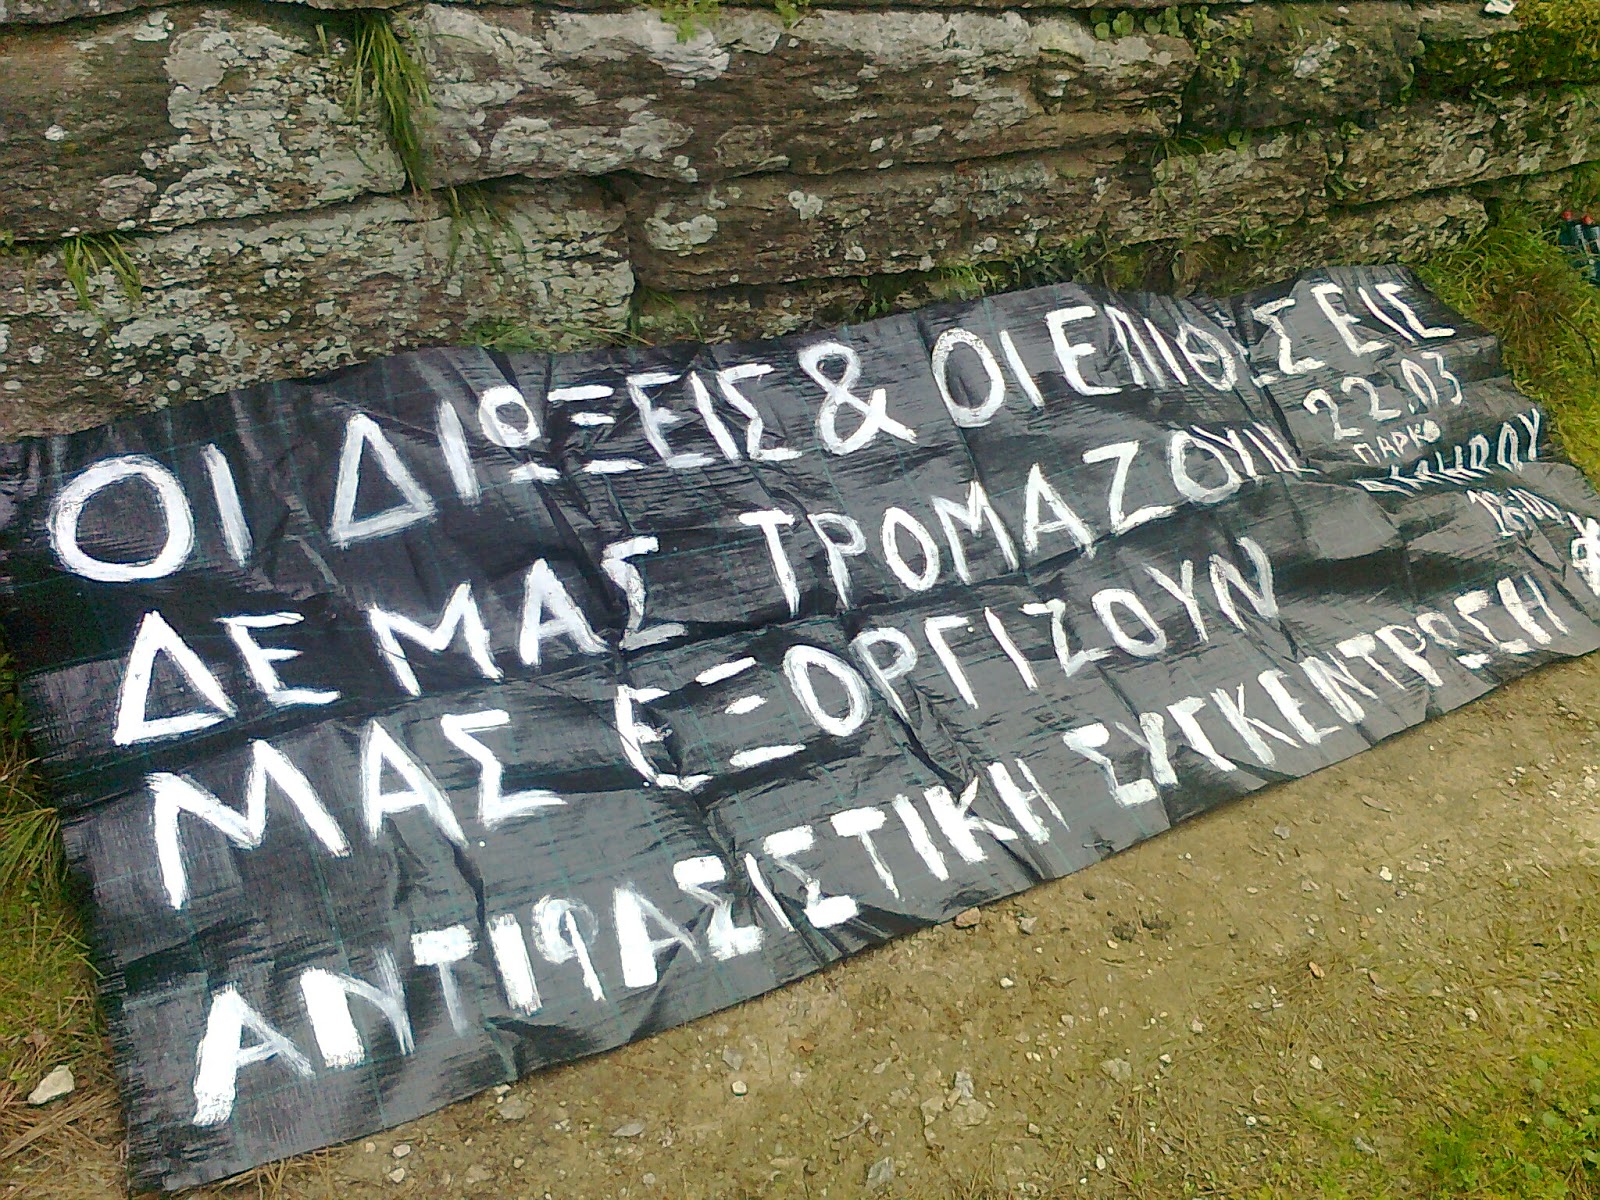 ΟΙ ΔΙΩΞΕΙΣ & ΟΙ ΕΠΙΘΕΣΕΙΣ
ΔΕ ΜΑΣ ΤΡΟΜΑΖΟΥΝ
ΜΑΣ ΕΞΟΡΓΙΖΟΥΝ
ΑΝΤΙΦΑΣΙΣΤΙΚΗ ΣΥΓΚΕΝΤΡΩΣΗ
22.03
ΠΑΡΚΟ
18:00